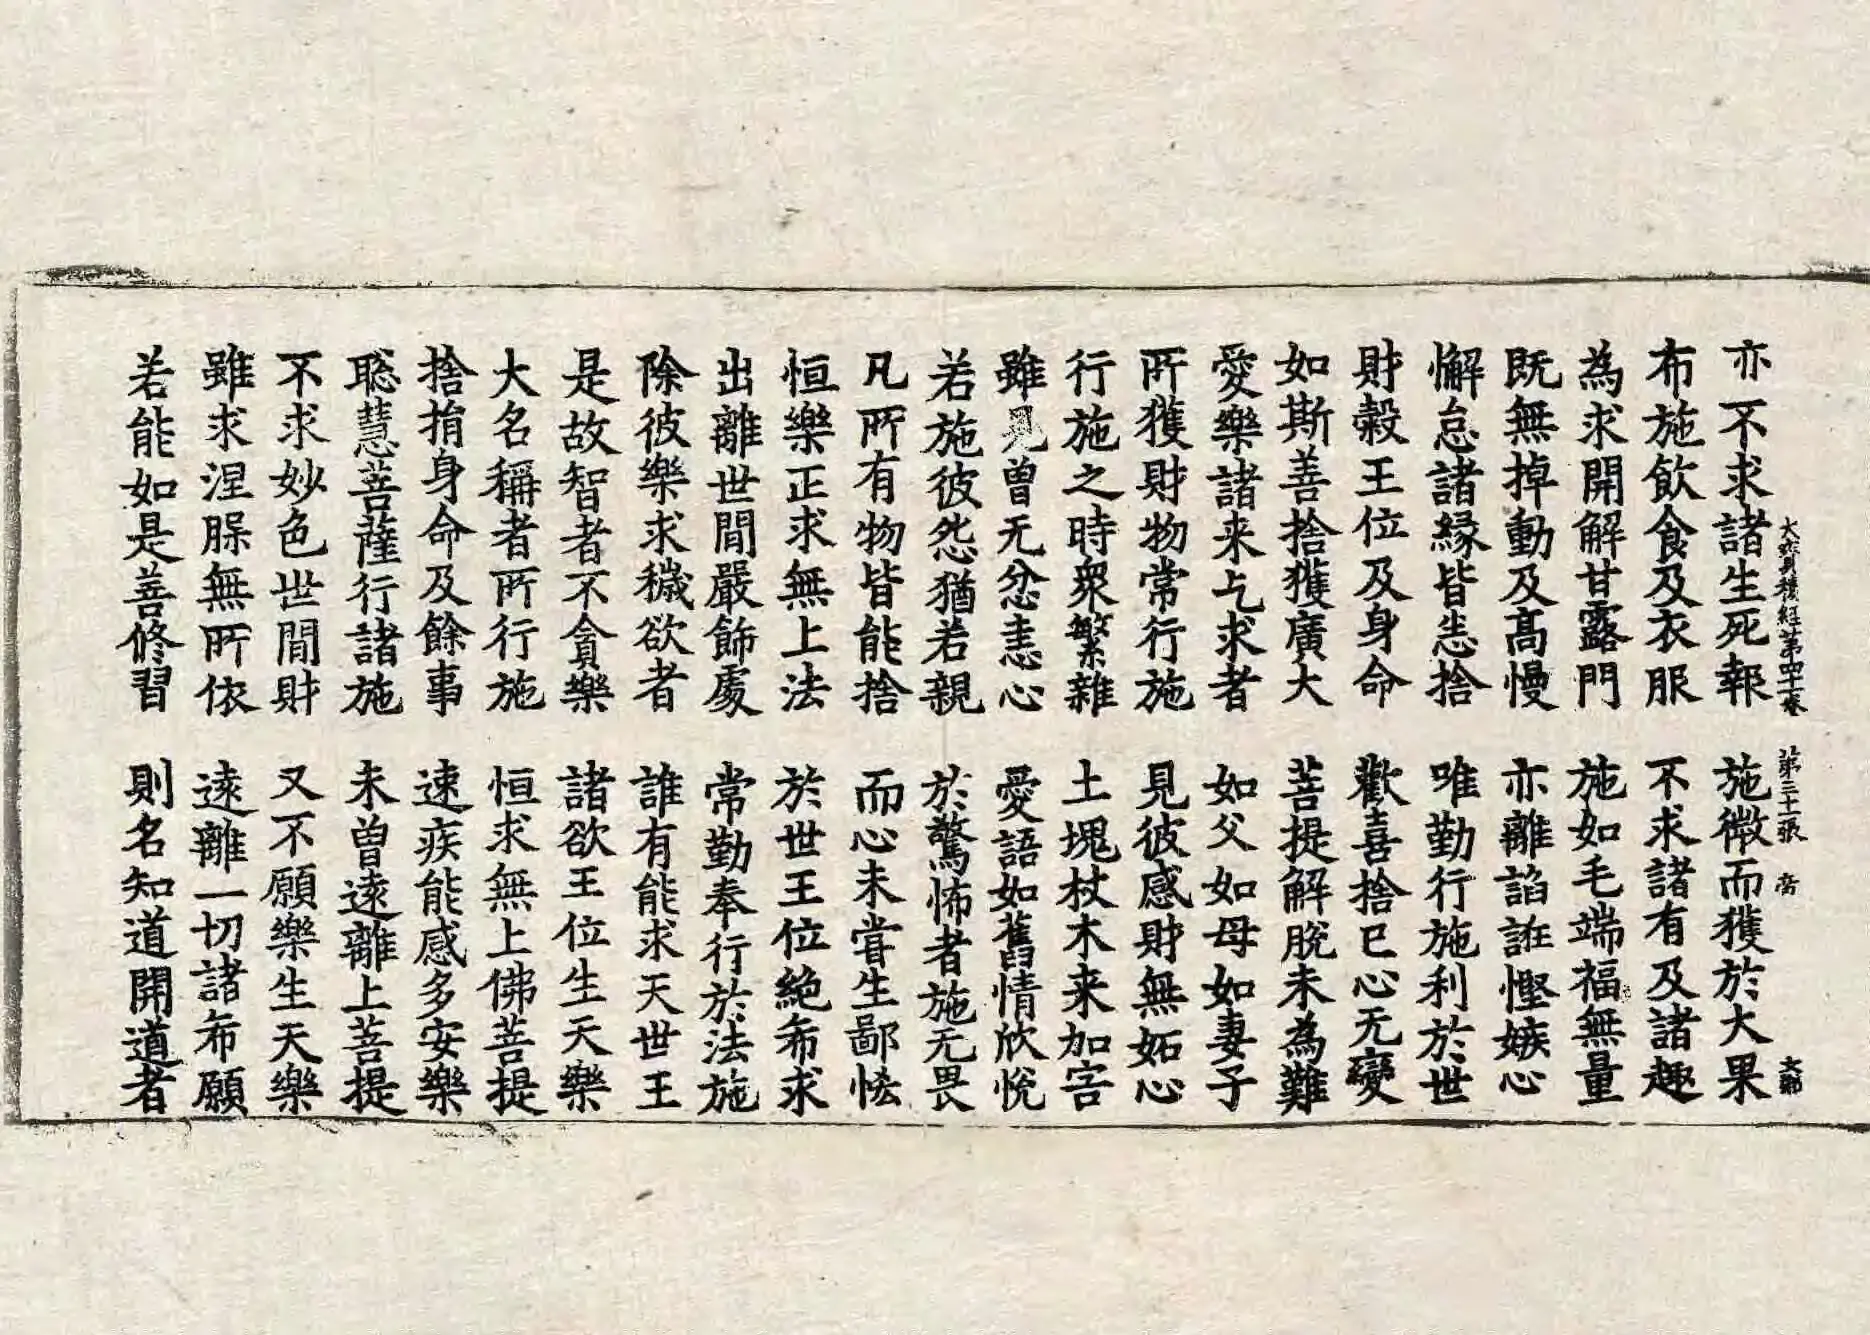 大寶積經第四十一卷 第三十一張 帝 大鄰
亦不求諸生死報 施微而獲於大果
布施飲食及衣服 不求諸有及諸趣
為求開解甘露門 施如毛端福無量
既無掉動及高慢 亦離諂誑慳嫉心
懈怠諸緣皆恙捨 唯勤行施利於世
財穀王位及身命 歡喜捨已心无變
如斯善捨獲廣大 菩提解脫未為難
愛樂諸来乞求者 如父如母如妻子
所獲財物常行施 見彼感財無妬心
行施之時衆繁雜 土塊杖木来加害
雖見曾无忿恚心 愛語如舊情欣悅
若施彼怨猶若親 於驚怖者施无畏
凡所有物皆能捨 而心未甞生鄙恡
恒樂正求無上法 於世王位絕希求
出離世間嚴飾處 常勤奉行於法施
除彼樂求穢欲者 誰有能求天世王
是故智者不貪樂 諸欲王位生天樂
大名稱者所行施 恒求無上佛菩提
捨捐身命及餘事 速疾能感多安樂
聡慧菩薩行諸施 未曾遠離上菩提
不求妙色世間財 又不願樂生天樂
雖求涅槃無所依 遠離一切諸希願
若能如是善修習 則名知道開道者